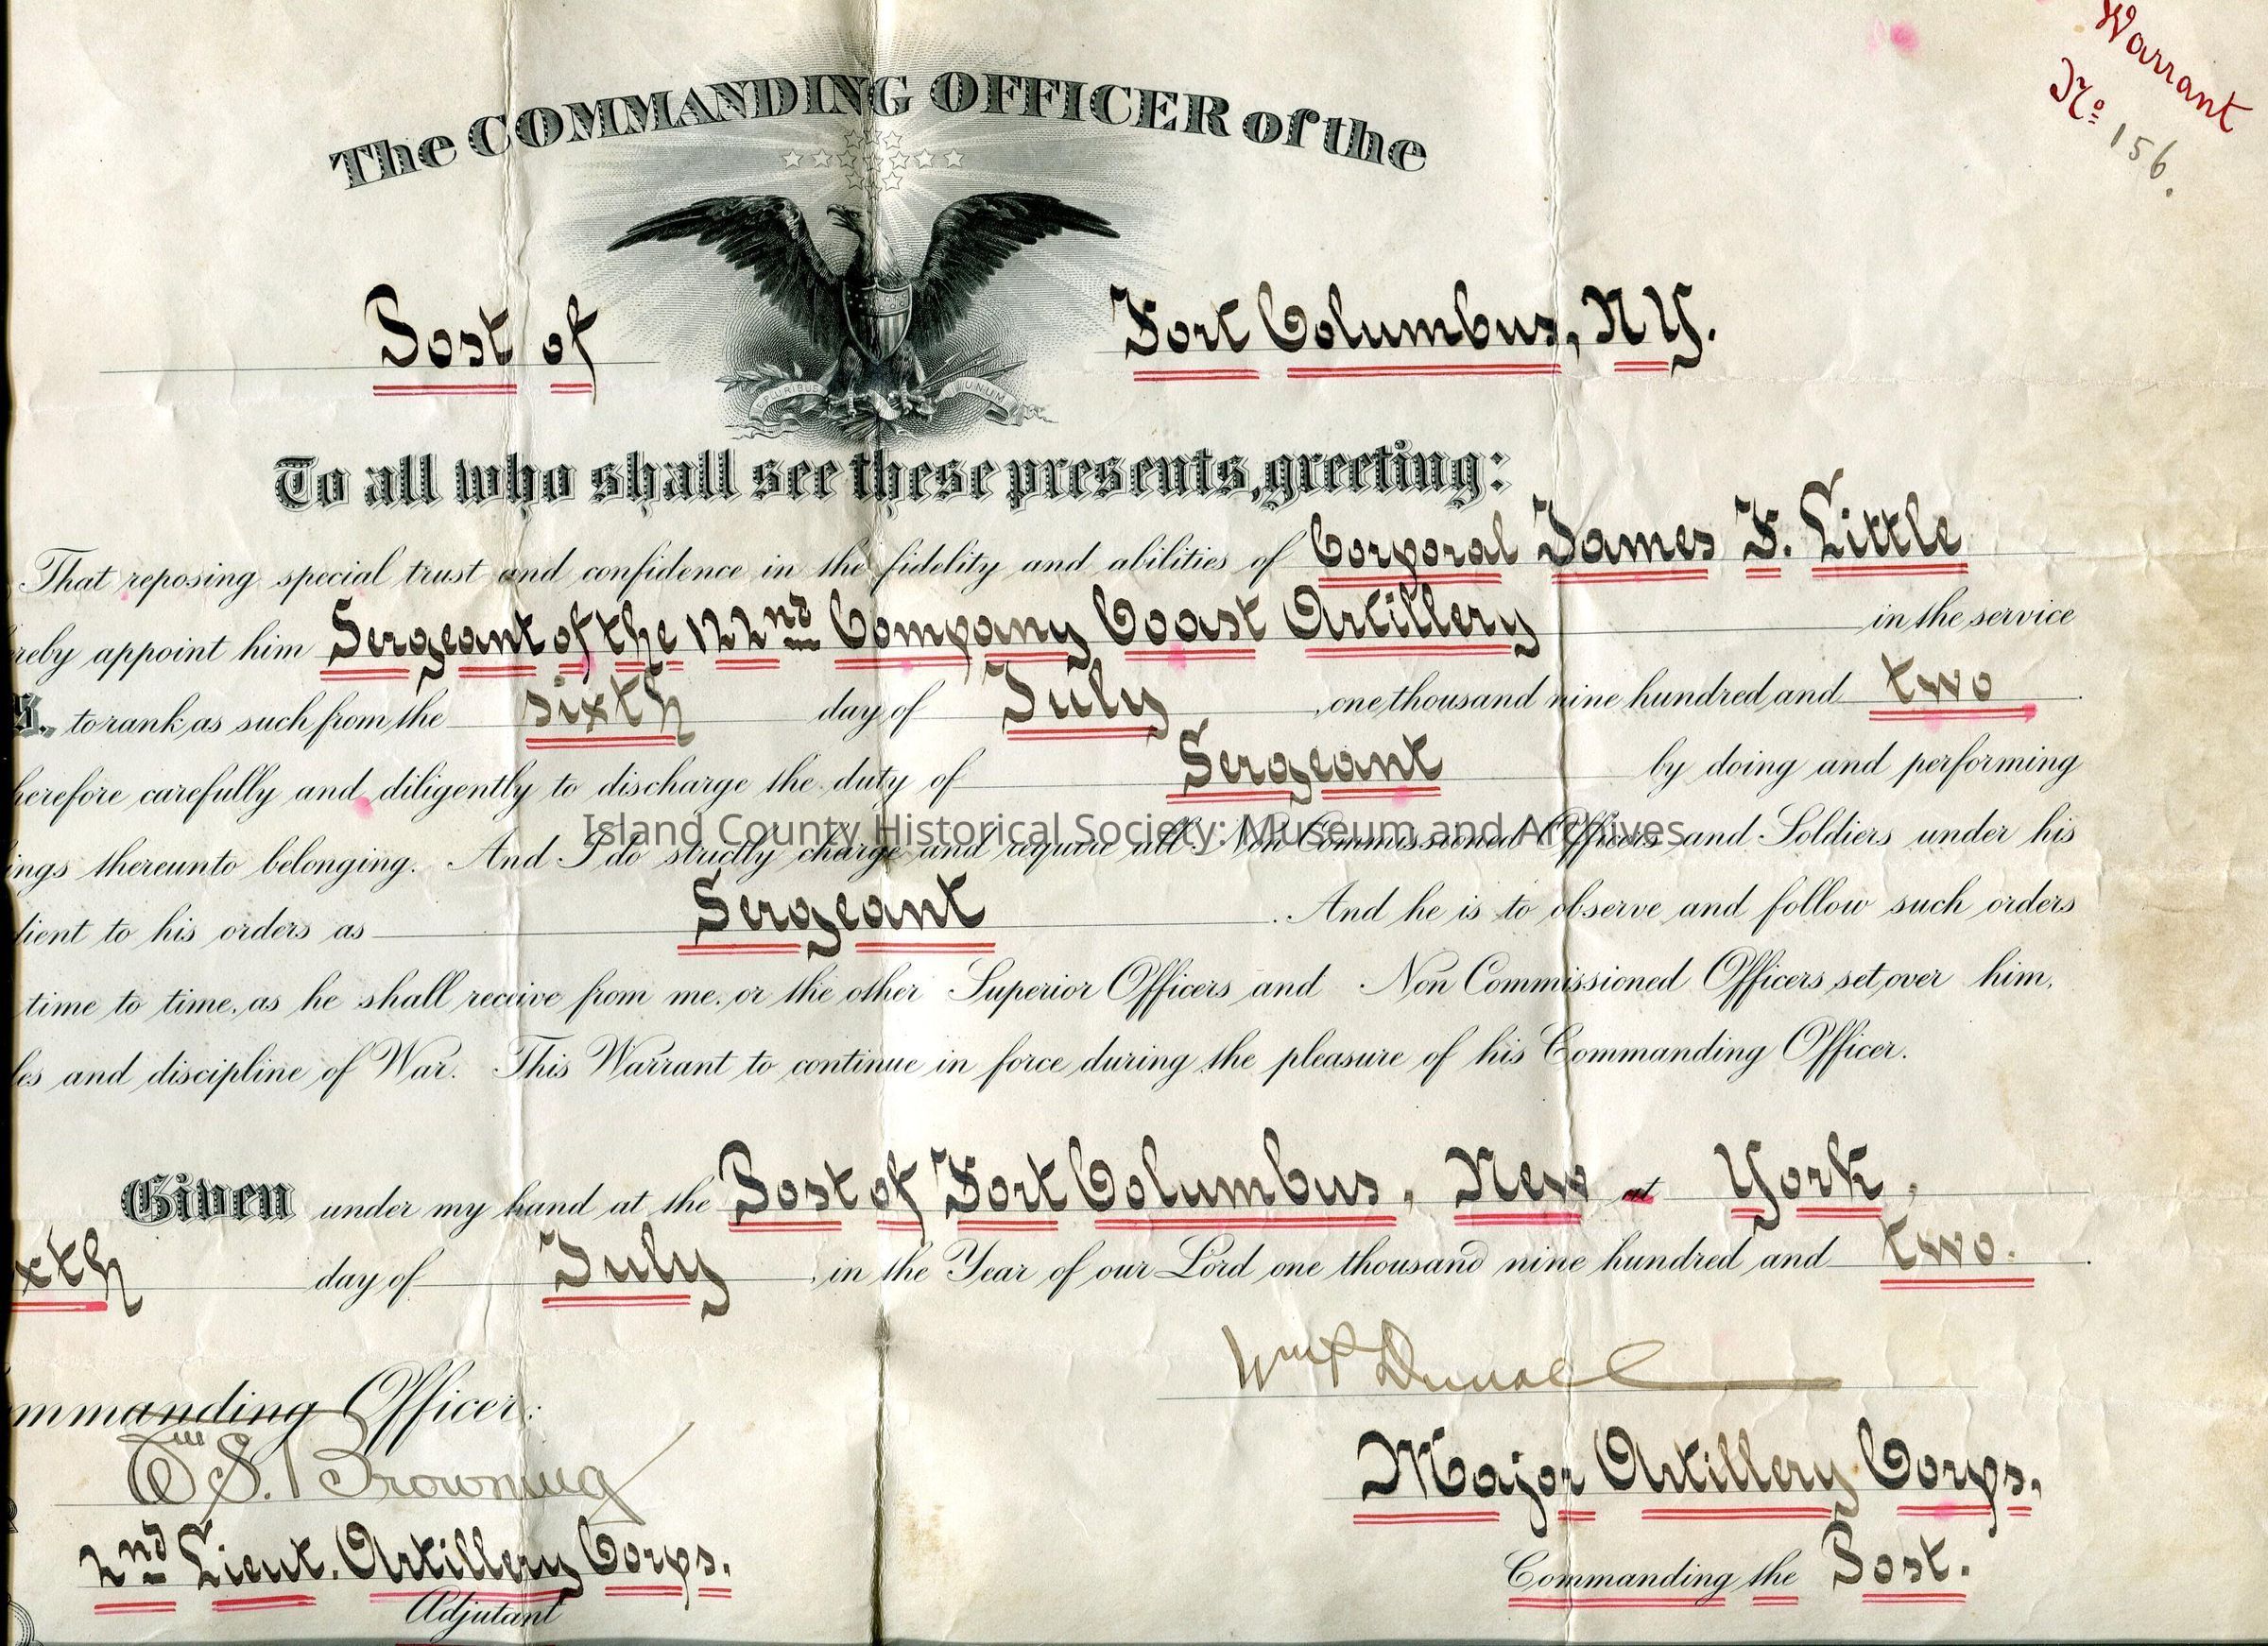 Warrant
No 156.
The COMMANDING OFFICER of the
Post of Fort Columbus, N Y.
E PLURIBUS UNUM
To all who shall see these presents, greeting:
That reposing special trust and confidence in the fidelity and abilities of Corporal James F. Little
reby appoint him Sergeant of the 122nd Company Coast Artillery in the service
S., to rank as such from the sixth day of July, one thousand nine hundred and two.
herefore carefully and diligently to discharge the duty of Sergeant by doing and performing
ings thereunto belonging. And I do strictly charge and require all Non Commissioned Officers and Soldiers under his
Island County Historical Society: Museum and Archives
dient to his orders as Sergeant. And he is to observe and follow such orders
time to time, as he shall receive from me, or the other Superior Officers and Non Commissioned Officers set over him,
les and discipline of War. This Warrant to continue in force during the pleasure of his Commanding Officer.
Given under my hand at the Post of Fort Columbus, New at York,
xth day of July, in the Year of our Lord one thousand nine hundred and two.
Wm P Duvall
mmanding Officer:
Wm S. Browning
Major Artillery Corps.
2nd Lieut. Artillery Corps.
Commanding the Post.
Adjutant